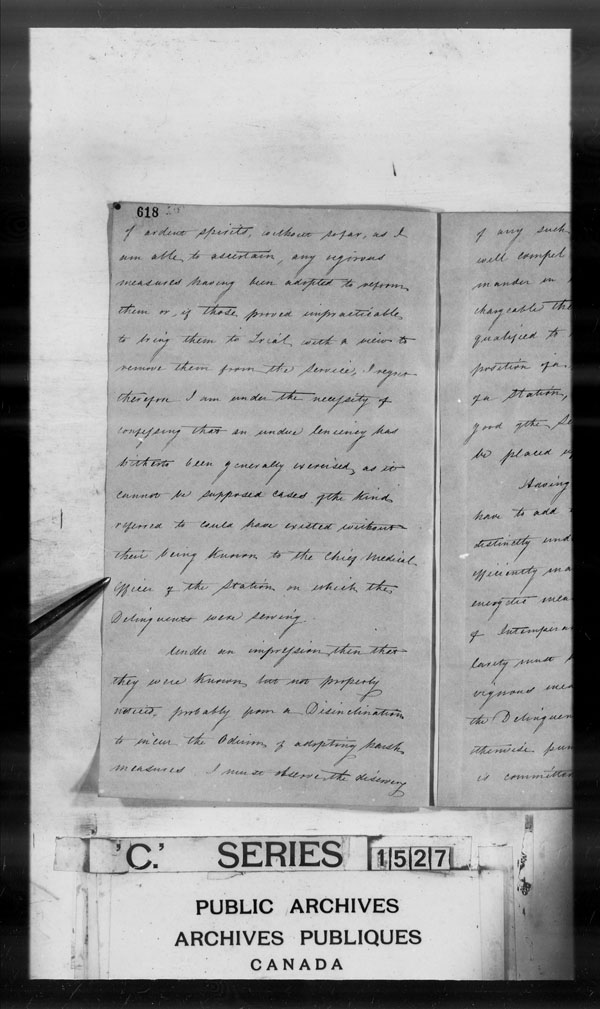 618
of ardent spirits, without so far, as I
am able to ascertain, any vigorous
measures having been adopted to reform
them or, if those proved impracticable,
to bring them to Trial, with a view to
remove them from the Service, I regret
therefore I am under the necessity of
confessing that an undue lenciency has
hitherto been generally exercised, as it
cannot be supposed cases of the kind
referred to could have existed without
their being known to the Chief Medical
Officer of the Station on which the
Delinquents were serving.
Under an impression then that
they were known but not properly
noticed, probably from a Disinclination
to incur the Odium of adopting harsh
measures I must observe the discovery
of any such
will compel
mander in
chargeable
qualified to
position of a
of a Station,
good of the
be placed
Having
have to add
distinctly
efficiently
energetic
of
larity must
vigorous
the Delinquen
otherwise
is committed
'C.' SERIES 1527
PUBLIC ARCHIVES
ARCHIVES PUBLIQUES
CANADA